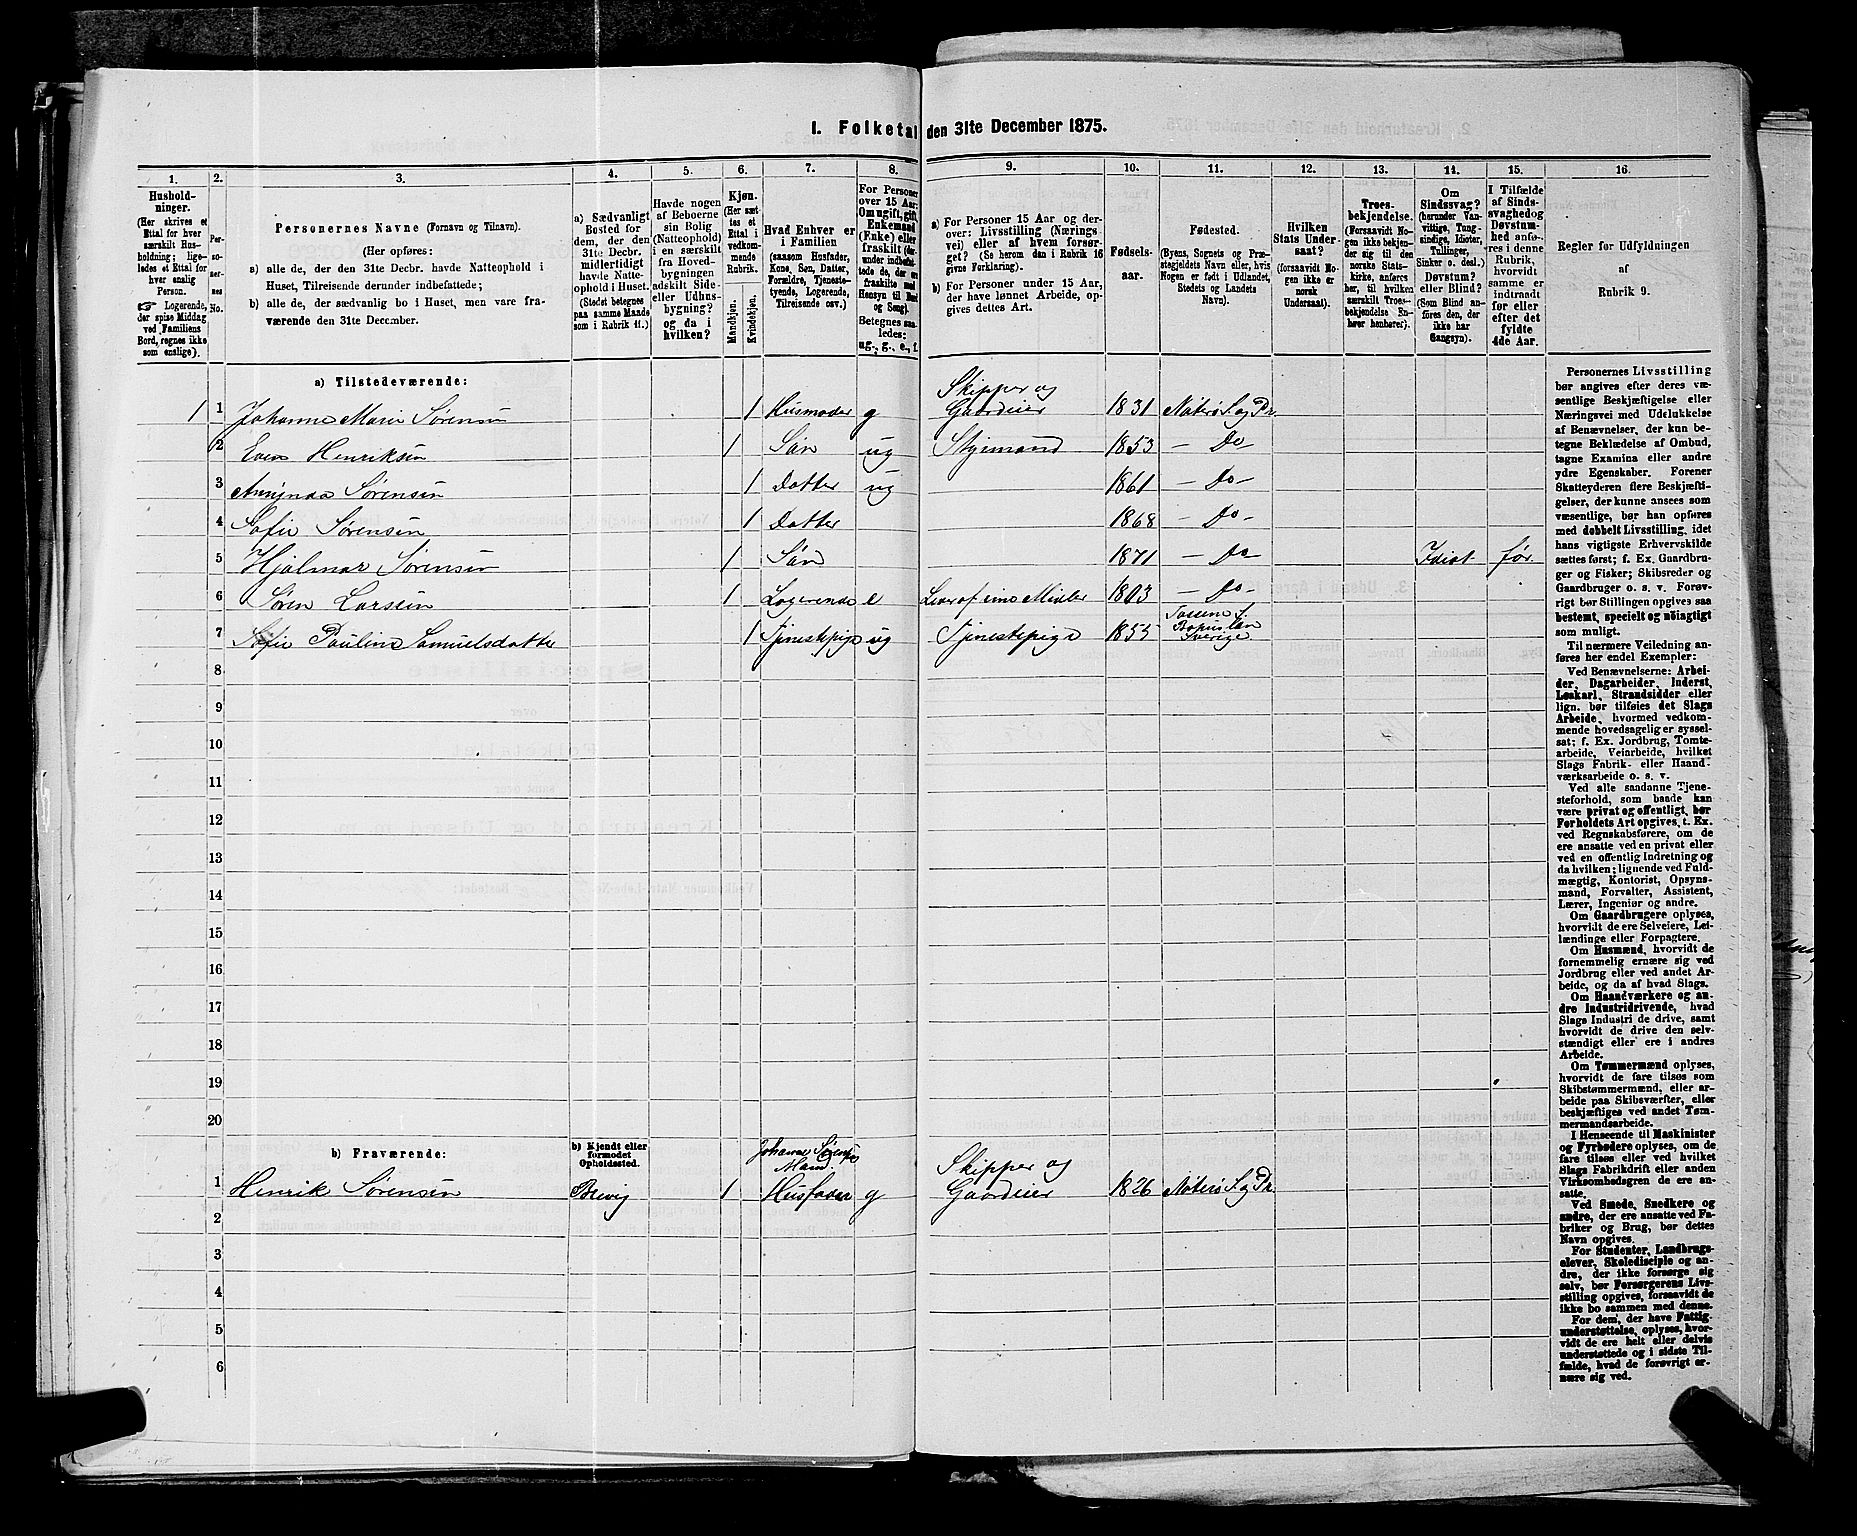 I. Folketal den 31te December 1875.
1.
2.
3.
4.
5.
6.
7.
8.
9.
10.
11.
12.
13.
14.
15.
16.
Hushold-
ninger.
(Her skrives et
Ettal for hver
særskilt Hus-
holdning; lige-
ledes et Ettal for
hver enslig
Person.
☞ Logerende,
der spise Middag
ved Familiens
Bord, regnes ikke
som enslige).
Per-
so-
ner-
nes
No.
Personernes Navne (Fornavn og Tilnavn).
(Her opføres:
a) alle de, der den 31te Decbr. havde Natteophold i
Huset, Tilreisende derunder indbefattede;
b) alle de, der sædvanlig bo i Huset, men vare fra-
værende den 31te December.
a) Sædvanligt
Bosted for
dem, der den
31te Decbr.
midlertidigt
havde Natte-
ophold i Huset.
(Stedet betegnes
paa samme Maade
som i Rubrik 11.)
Havde nogen
af Beboerne
sin Bolig
(Natteophold)
i en særskilt
fra Hoved-
bygningen
adskilt Side-
eller Udhus-
bygning?
og da i
hvilken?
Kjøn.
(Her sæt-
tes et
Ettal i
vedkom-
mende
Rubrik.
Mandkjøn.
Kvindekjøn.
Hvad Enhver er
i Familien
(saasom Husfader,
Kone, Søn, Datter,
Forældre, Tjeneste-
tyende, Logerende,
Tilreisende osv.)
For Personer
over 15 Aar:
Om ugift, gift,
Enkemand
(Enke) eller
fraskilt (der-
under indbefat-
tede de, der er
fraskilte med
Hensyn til Bord
og Seng).
Betegnes saa-
ledes:
ug., g., e., f.
a) For Personer 15 Aar og der-
over: Livsstilling (Nærings-
vei) eller af hvem forsør-
get? (Se herom den i Rubrik 16
givne Forklaring).
b) For Personer under 15 Aar,
der have lønnet Arbeide, op-
gives dettes Art.
Fødsels-
aar.
Fødested.
(Byens, Sognets og Præ-
stegjeldets Navn eller, hvis
Nogen er født i Udlandet,
Stedets og Landets
Navn).
Hvilken
Stats Under-
saat?
(forsaavidt No-
gen ikke er
norsk
Undersaat).
Troes-
bekjendelse.
(Forsaavidt No-
gen ikke bekjen-
der sig til den
norske Stats-
kirke, anføres
her, til hvilken
særskilt Troes-
bekjendelse En-
hver henhører).
Om
Sindssvag?
(herunder Van-
vittige, Tung-
sindige, Idioter,
Tullinger,
Sinker o. desl.)
Døvstum?
eller Blind?
(Som Blind an-
føres den, der
ikke har
Gangsyn).
I Tilfælde
af Sinds-
svaghed og
Døvstum-
hed anfø-
res i denne
Rubrik,
hvorvidt
samme er
indtraadt
før eller
efter det
fyldte
4de Aar.
Regler for Udfyldningen
af
Rubrik 9.
a) Tilstedeværende:
1 1 Johanne Marie Sørensen 1 Husmoder g Skipper og Gaardeier 1831 Nøterø S. og Pr.
2 Even Henriksen 1 Søn ug Styrmand 1853 – Do –
3 Amynda Sørensen 1 Datter ug 1861 – Do –
4 Sofie Sørensen 1 Datter 1868 – Do –
5 Hjalmar Sørensen 1 Søn 1871 – Do – Idiot før.
6 Søren Larsen 1 Logerende e Lever af sine Midler 1803 – Do –
7 Sofie Pauline Samuelsdatter 1 Tjenestepige ug Tjenestepige 1855 Tossene S. Bohuslen Sverige
8
9
10
11
12
13
14
15
16
17
18
19
20
b) Fraværende:
b) Kjendt eller
formodet
Opholdssted.
1 Henrik Sørensen Brevig 1 Johanne Sørensens Mand. Husfader g Skipper og Gaardeier 1826 Nøterø S. og Pr.
2
3
4
5
6
Personernes Livsstilling
bør angives efter deres væ-
sentlige Beskjæftigelse eller
Næringsvei med Udelukkelse
af Benævnelser, der kun be-
tegne Beklædelse af Ombud,
tagne Examina eller andre
ydre Egenskaber. Forener
Skatteyderen flere Beskjæfti-
gelser, der kunne ansees som
væsentlige, bør han opføres
med dobbelt Livsstilling, idet
hans vigtigste Erhvervskilde
sættes først; f. Ex. Gaardbru-
ger og Fisker; Skibsreder og
Gaardbruger o. s. v. Forøv-
rigt bør Stillingen opgives saa
bestemt, specielt og nøiagtigt
som muligt.
Til nærmere Veiledning an-
føres her endel Exempler:
Ved Benævnelserne: Arbei-
der, Dagarbeider, Inderst,
Løskarl, Strandsidder eller
lign. bør tilføies det Slags
Arbeide, hvormed vedkom-
mende hovedsagelig er syssel-
sat; f. Ex. Jordbrug, Tomte-
arbeide, Veiarbeide, hvilket
Slags Fabrik- eller Haand-
værksarbeide o. s. v.
Ved alle saadanne Tjene-
steforhold, som baade kan
være privat og offentligt, bør
Forholdets Art opgives, t. Ex.
ved Regnskabsførere, om de
ere ansatte ved en privat eller
ved en offentlig Indretning og
da hvilken; lignende ved Fuld-
mægtig, Kontorist, Opsyns-
mand, Forvalter, Assistent,
Lærer, Ingeniør og andre.
Om Gaardbrugere oplyses,
hvorvidt de ere Selveiere, Lei-
lændinge eller Forpagtere.
Om Husmænd, hvorvidt de
fornemmelig ernære sig ved
Jordbrug eller ved andet Ar-
beide, og da af hvad Slags.
Om Haandværkere og an-
dre Industridrivende, hvad
Slags Industri de drive, samt
hvorvidt de drive den selv-
stændigt eller ere i andres
Arbeide.
Om Tømmermænd oplyses,
hvorvidt de fare tilsøs som
Skibstømmermænd, eller ar-
beide paa Skibsværfter, eller
beskjæftiges ved andet Tøm-
mermandsarbeide.
I Henseende til Maskinister
og Fyrbødere oplyses, om de
fare tilsøs eller ved hvilket
Slags Fabrikdrift eller anden
Virksomhedsgren de ere an-
satte.
Ved Smede, Snedkere og
andre, der ere ansatte ved Fa-
briker og Brug, bør dettes
Navn opgives.
For Studenter, Landbrugs-
elever, Skoledisciple og an-
dre, der ikke forsørge sig
selv, bør Forsørgerens Livs-
stilling opgives, forsaavidt de
ikke bo sammen med denne.
For dem, der have Fattig-
understøttelse, oplyses, hvor-
vidt de ere helt eller delvis
understøttede og i sidste Til-
fælde, hvad de forøvrigt er-
nære sig ved.